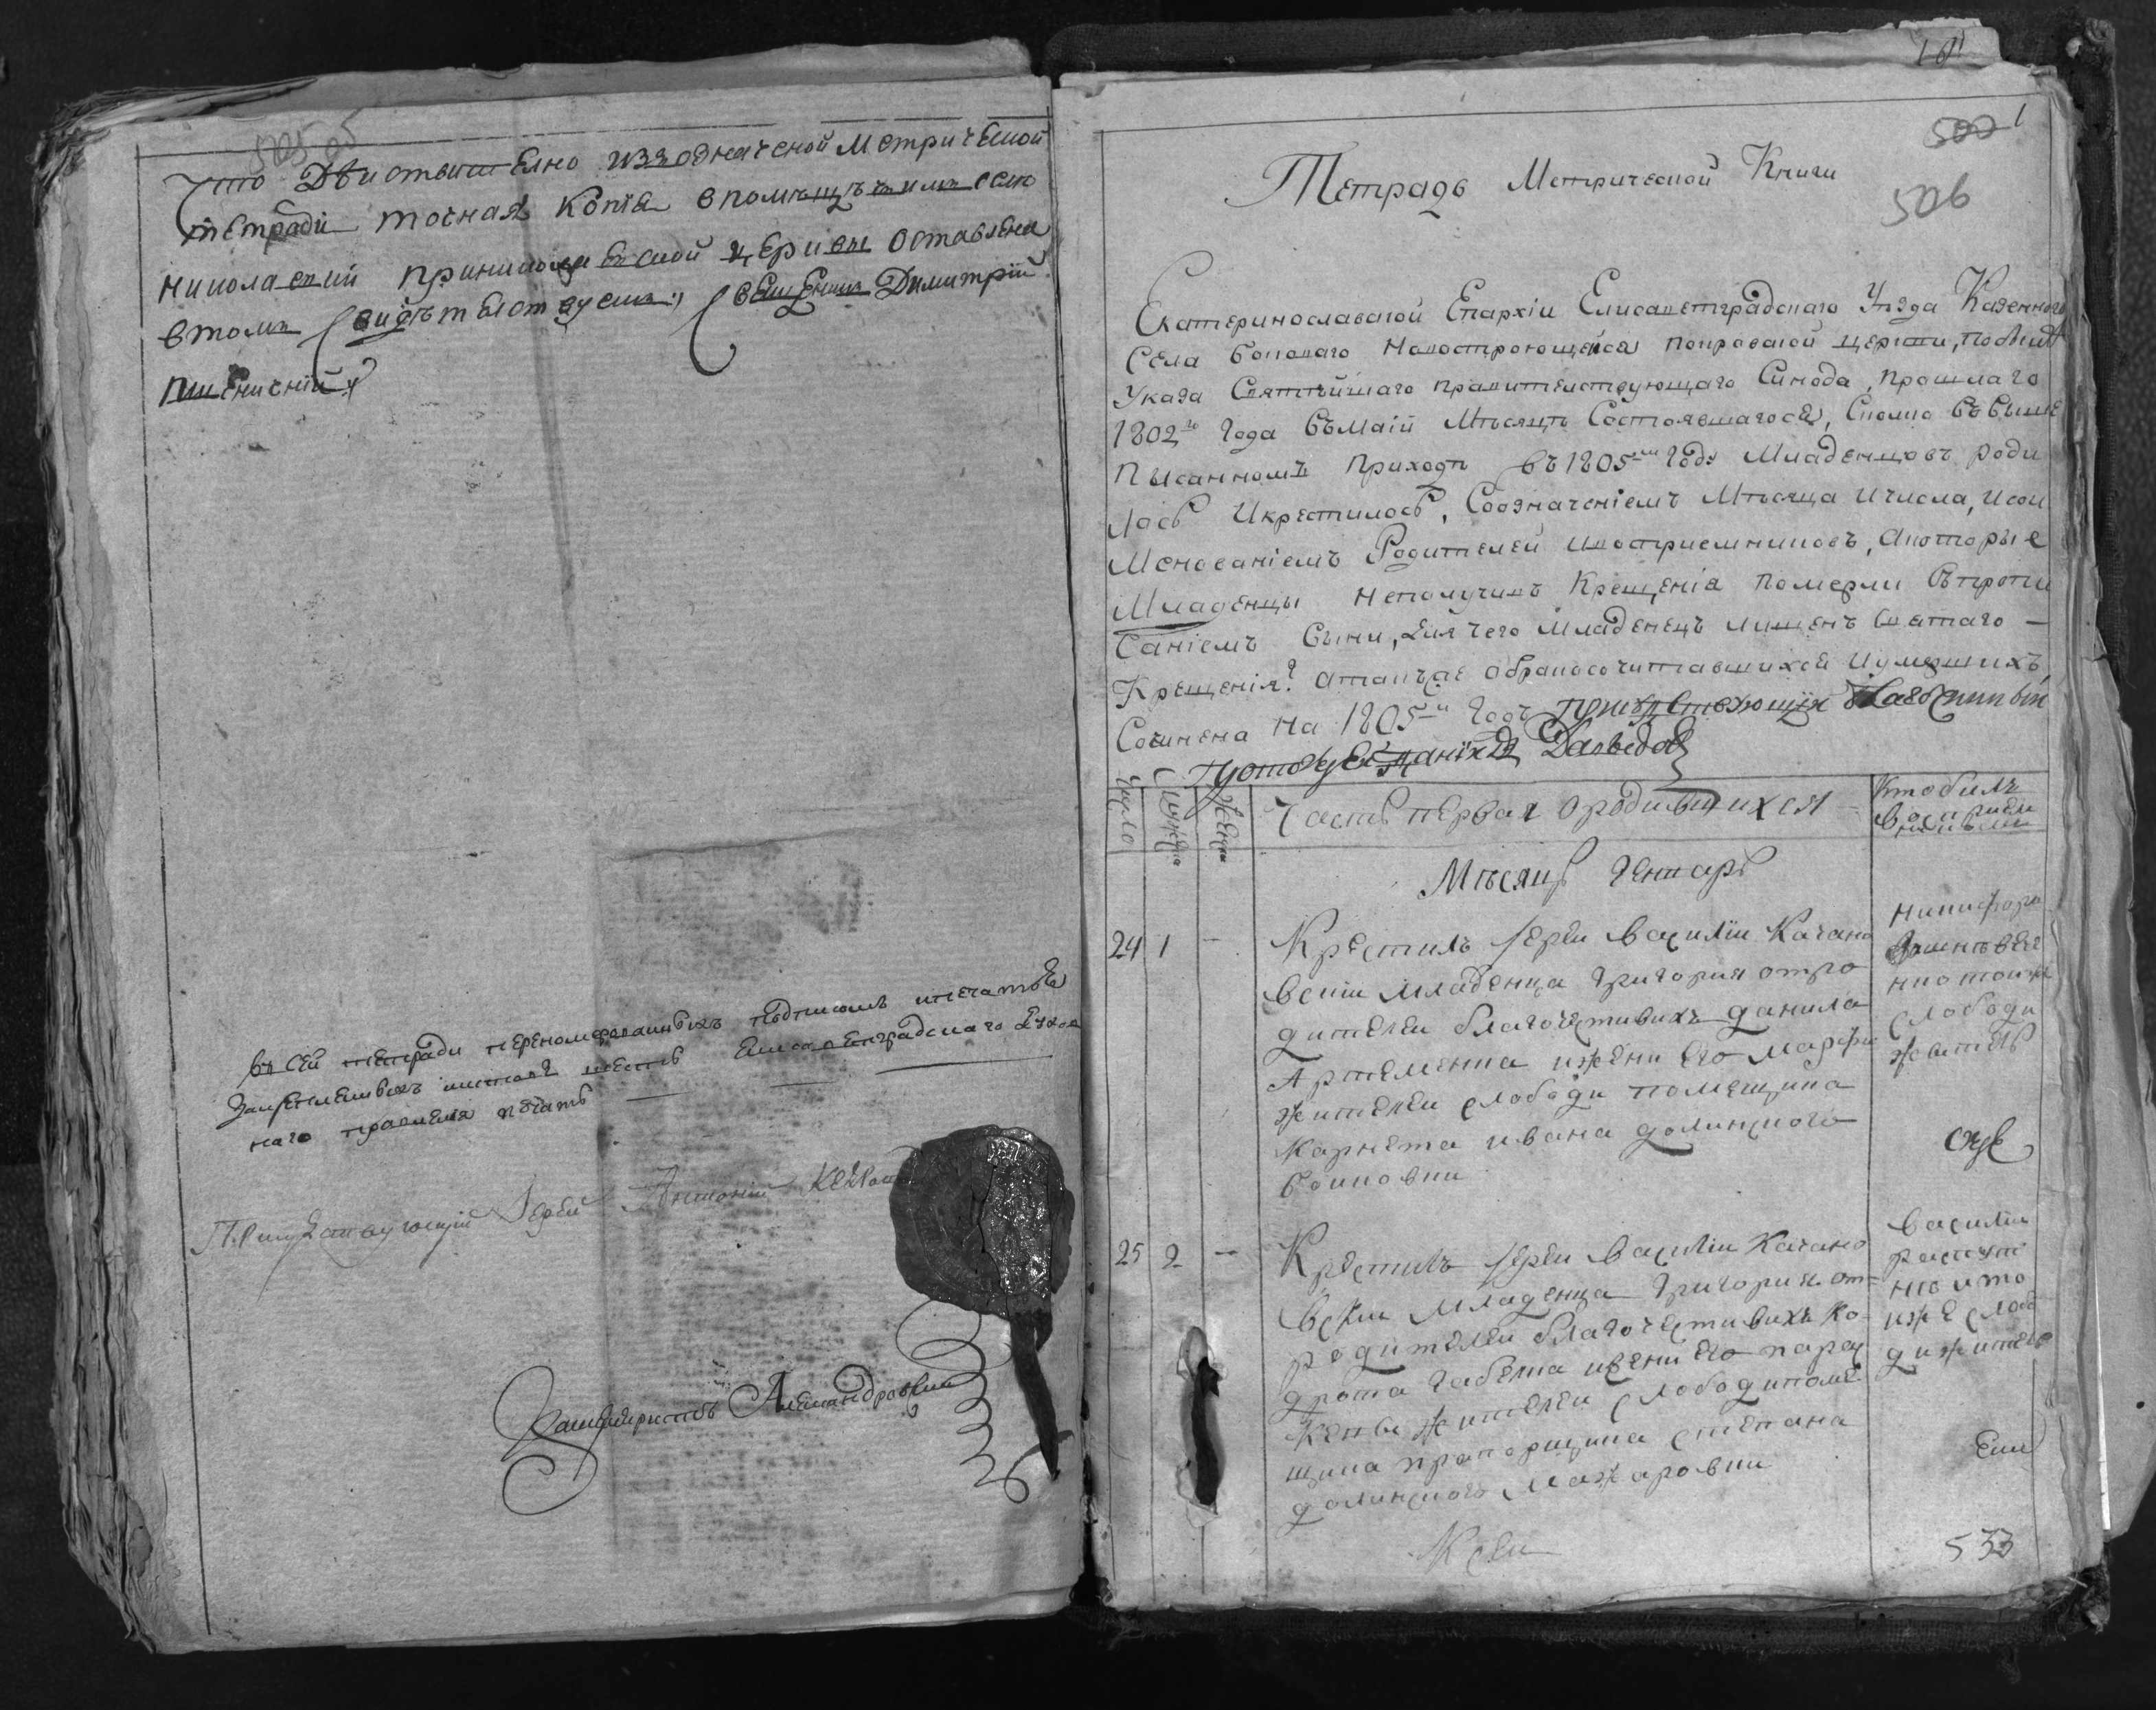 505 об
Что Двиствително изъозначеной Метрической
тетради точная Копія впомянутимъ селѣ
Николаевки принимаемской церкви Оставлена
втомъ Свидѣтелствуемъ; Свещеникъ Димитрій
въ сей тетради переномерованныхъ подписомъ ипечатью
закрепленныхъ листовъ шесть Елисаветградскаго Духов
наго правленія печать
Присудствующій Іерей Антоній
Канцеляристъ Александровскій
500
1
506
Тетрадь Метрической Книги
Екатеринославской Епархіи Елисаветградскаго Уѣзда Казенного
Села Боковаго Новостроющейся покровской церкви, посилѣ
Указа Святѣйшаго правителствующаго Синода, прошлаго
1802го Года Въ Маіи Мѣсяцѣ Состоявшагося, Сколко Въ Выше
писанномъ приходѣ Въ 1805мъ Годѣ Младенцовъ роди
лось Икрестилось, Сообозначеніемъ Мѣсяца Ичисла, Исои
менованіемъ Родителей Ивосприемниковъ, Акоторые
Младенцы Неполучивъ Крещенія Померли Съпропи
саніемъ Вины, Для чего Младенецъ лишенъ Святаго —
Крещенія? Атакъже Обракосочитавшихся Иумершихъ
Сочинена На 1805й Годъ присудствующій Благочинный
протоіерей Давидов
Число
Мужеска
Женска
Часть первая Ородившихся
Ктобилъ
восприем
никами
Мѣсяцъ Генварь
24 1 — Крестилъ Іереи Василіи Качано
вскіи младенца Григория отро
дителеи благочестивихъ данила
Артеменка ижени Его марфи
жителеи слободи помещика
Карнета ивана долинского
Боковки
Никифоръ
нко тоиже
слободи
житель
25 2 — Крестилъ Іереи Василіи Качано
вскіи Младенца Григория от
родителеи благочестивихъ Ко
драта Габелка ижени Его парас
Кевы жителеи слободи поме
щика прапорщика степана
долинского Макаровки
Василіи
нко то
иже слобо
ди житель
533